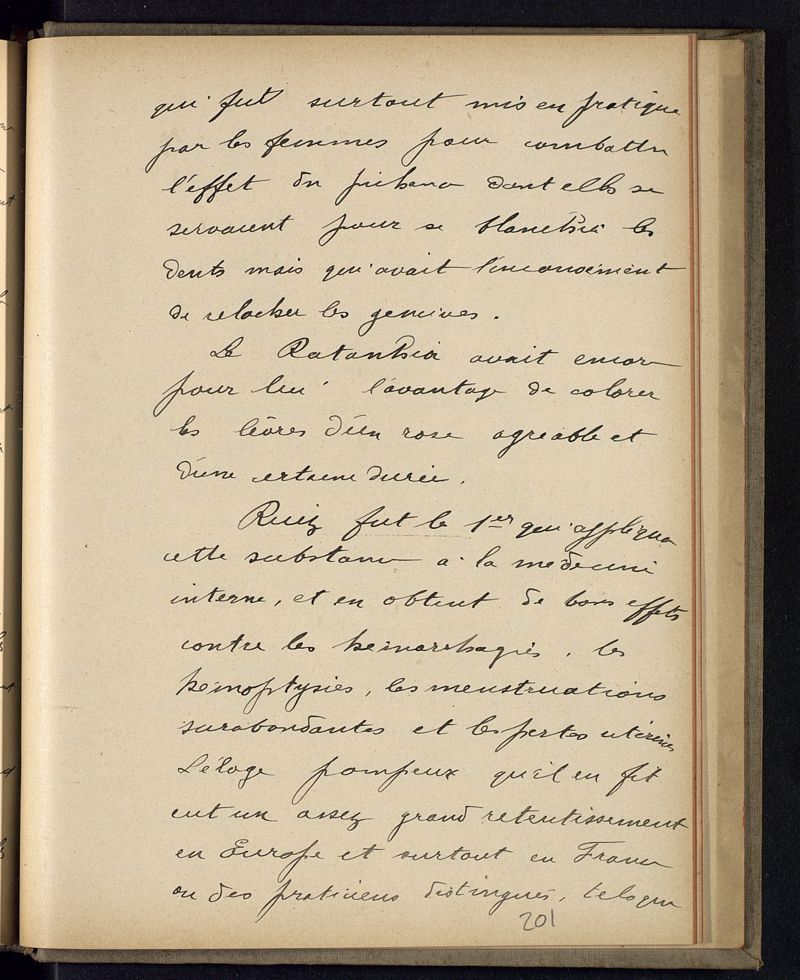 qui fut surtout mis en pratique
par les femmes pour combattre
l'effet du dont elles se
servaient pour se blanchir les
dents mais qui avait l'inconvenient
de relacher les gencives.
Le Ratanhia avait encore
pour lui l'avantage de colorer
les lèvres d'un rose agréable et
d'une certaine durée.
Ruiz fut le 1er qui appliqua
cette substance a la medecine
interne, et en obtint de bons effets
contre les hémorrhagies, les
hémoptysies, les menstruations
surabondantes et les pertes utérines
L'éloge pompeux qu'il en fit
eut un assez grand retentissement
en Europe et surtout en France
ou des praticiens distingués, tels que
201